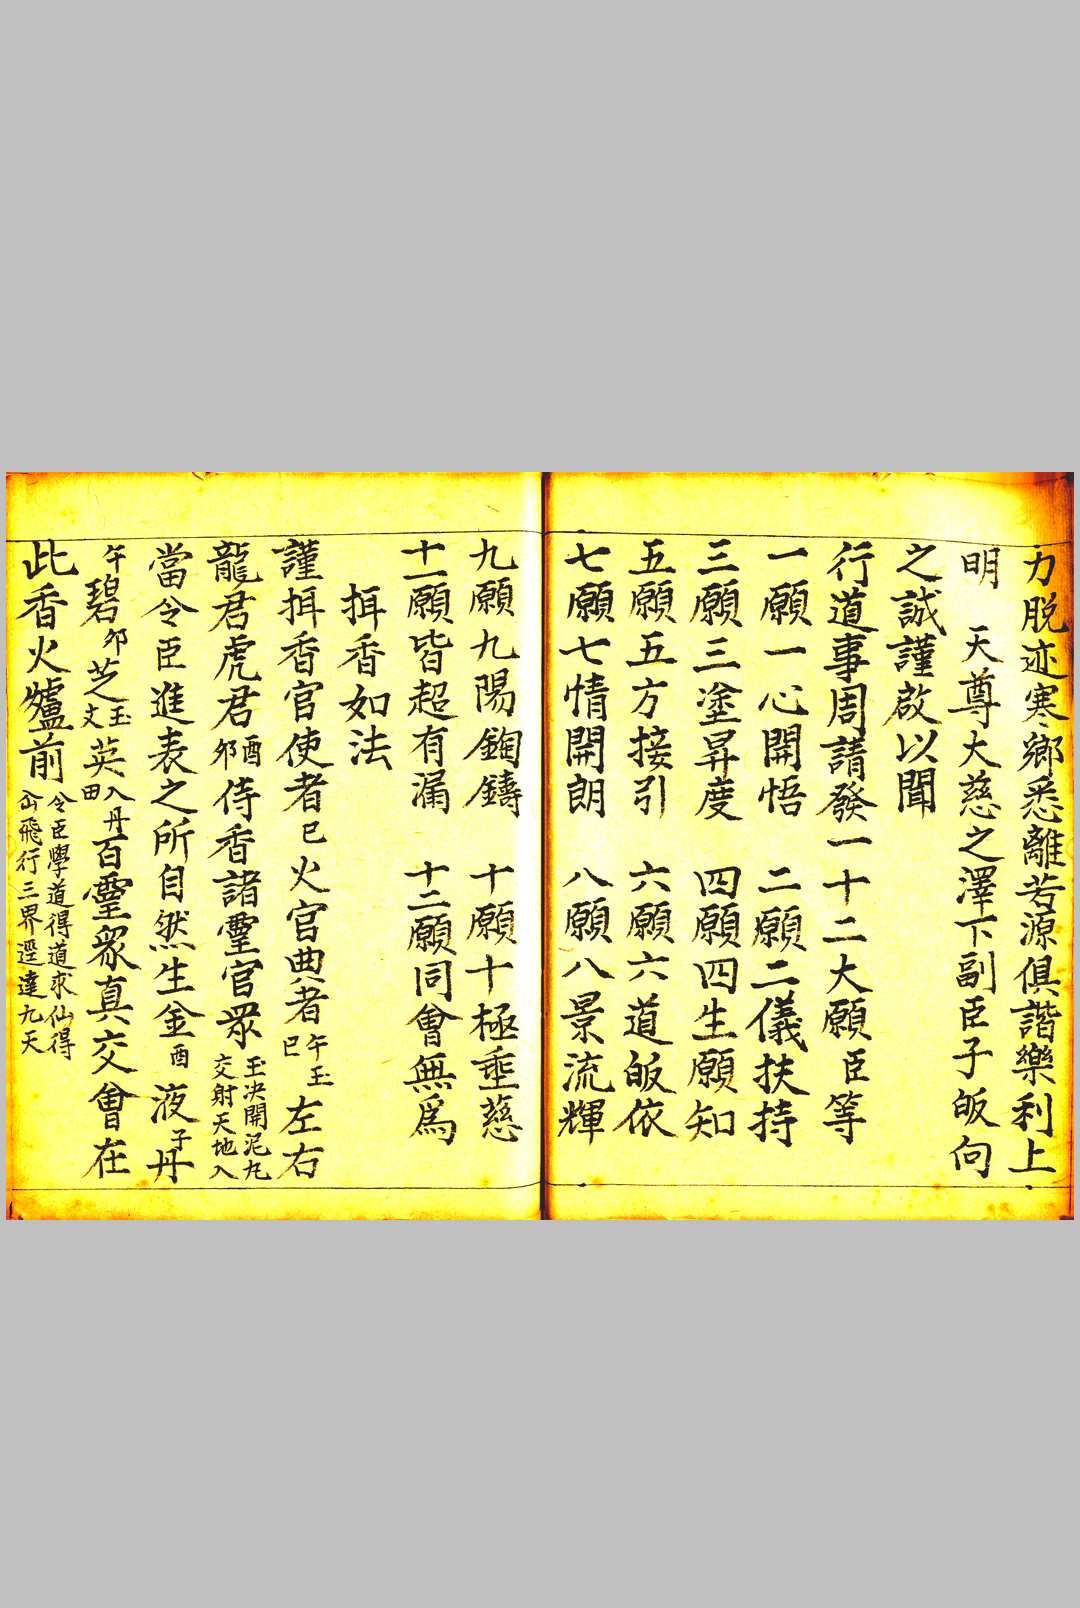 力脱迹寒鄉悉離苦源俱諧樂利上
明　天尊大慈之澤下副臣子皈向
之誠謹啟以聞
行道事周請發一十二大願臣等
一願一心開悟　二願二儀扶持
三願三塗昇度　四願四生願知
五願五方接引　六願六道皈依
七願七情開朗　八願八景流輝
九願九陽鍧鑄　十願十極垂慈
十一願皆超有漏　十二願同會無為
揖香如法
謹揖香官使者巳火官典者午玉巳左右
龍君虎君酉卯侍香諸靈官眾玉决開泥丸交射天地入
當令臣進表之所自然生金酉液子丹
午碧卯芝玉文英入丹田百靈眾真交會在
此香火爐前令臣學道得道求仙得仚飛行三界逕達九天